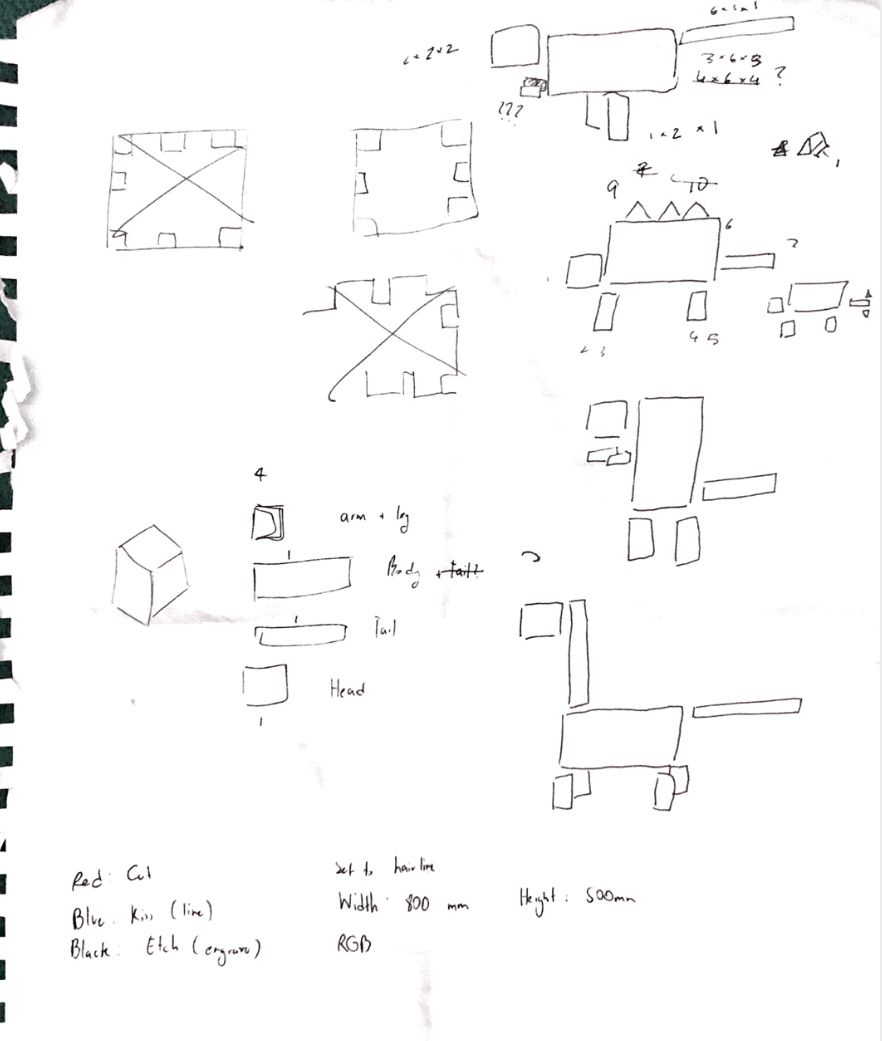 6 x 1 x 1
2 x 2
3 x 6 x 3
4 x 6 x 4 ?
???
1 x 2 x 1
9
6
4 5
4
arm + leg
1
Body + tail
1
Tail
Head
1
Red: Cut
Blue: Kiss (line)
Black: Etch (engrave)
set to hairline
Width: 800 mm
Height: 500mm
RGB